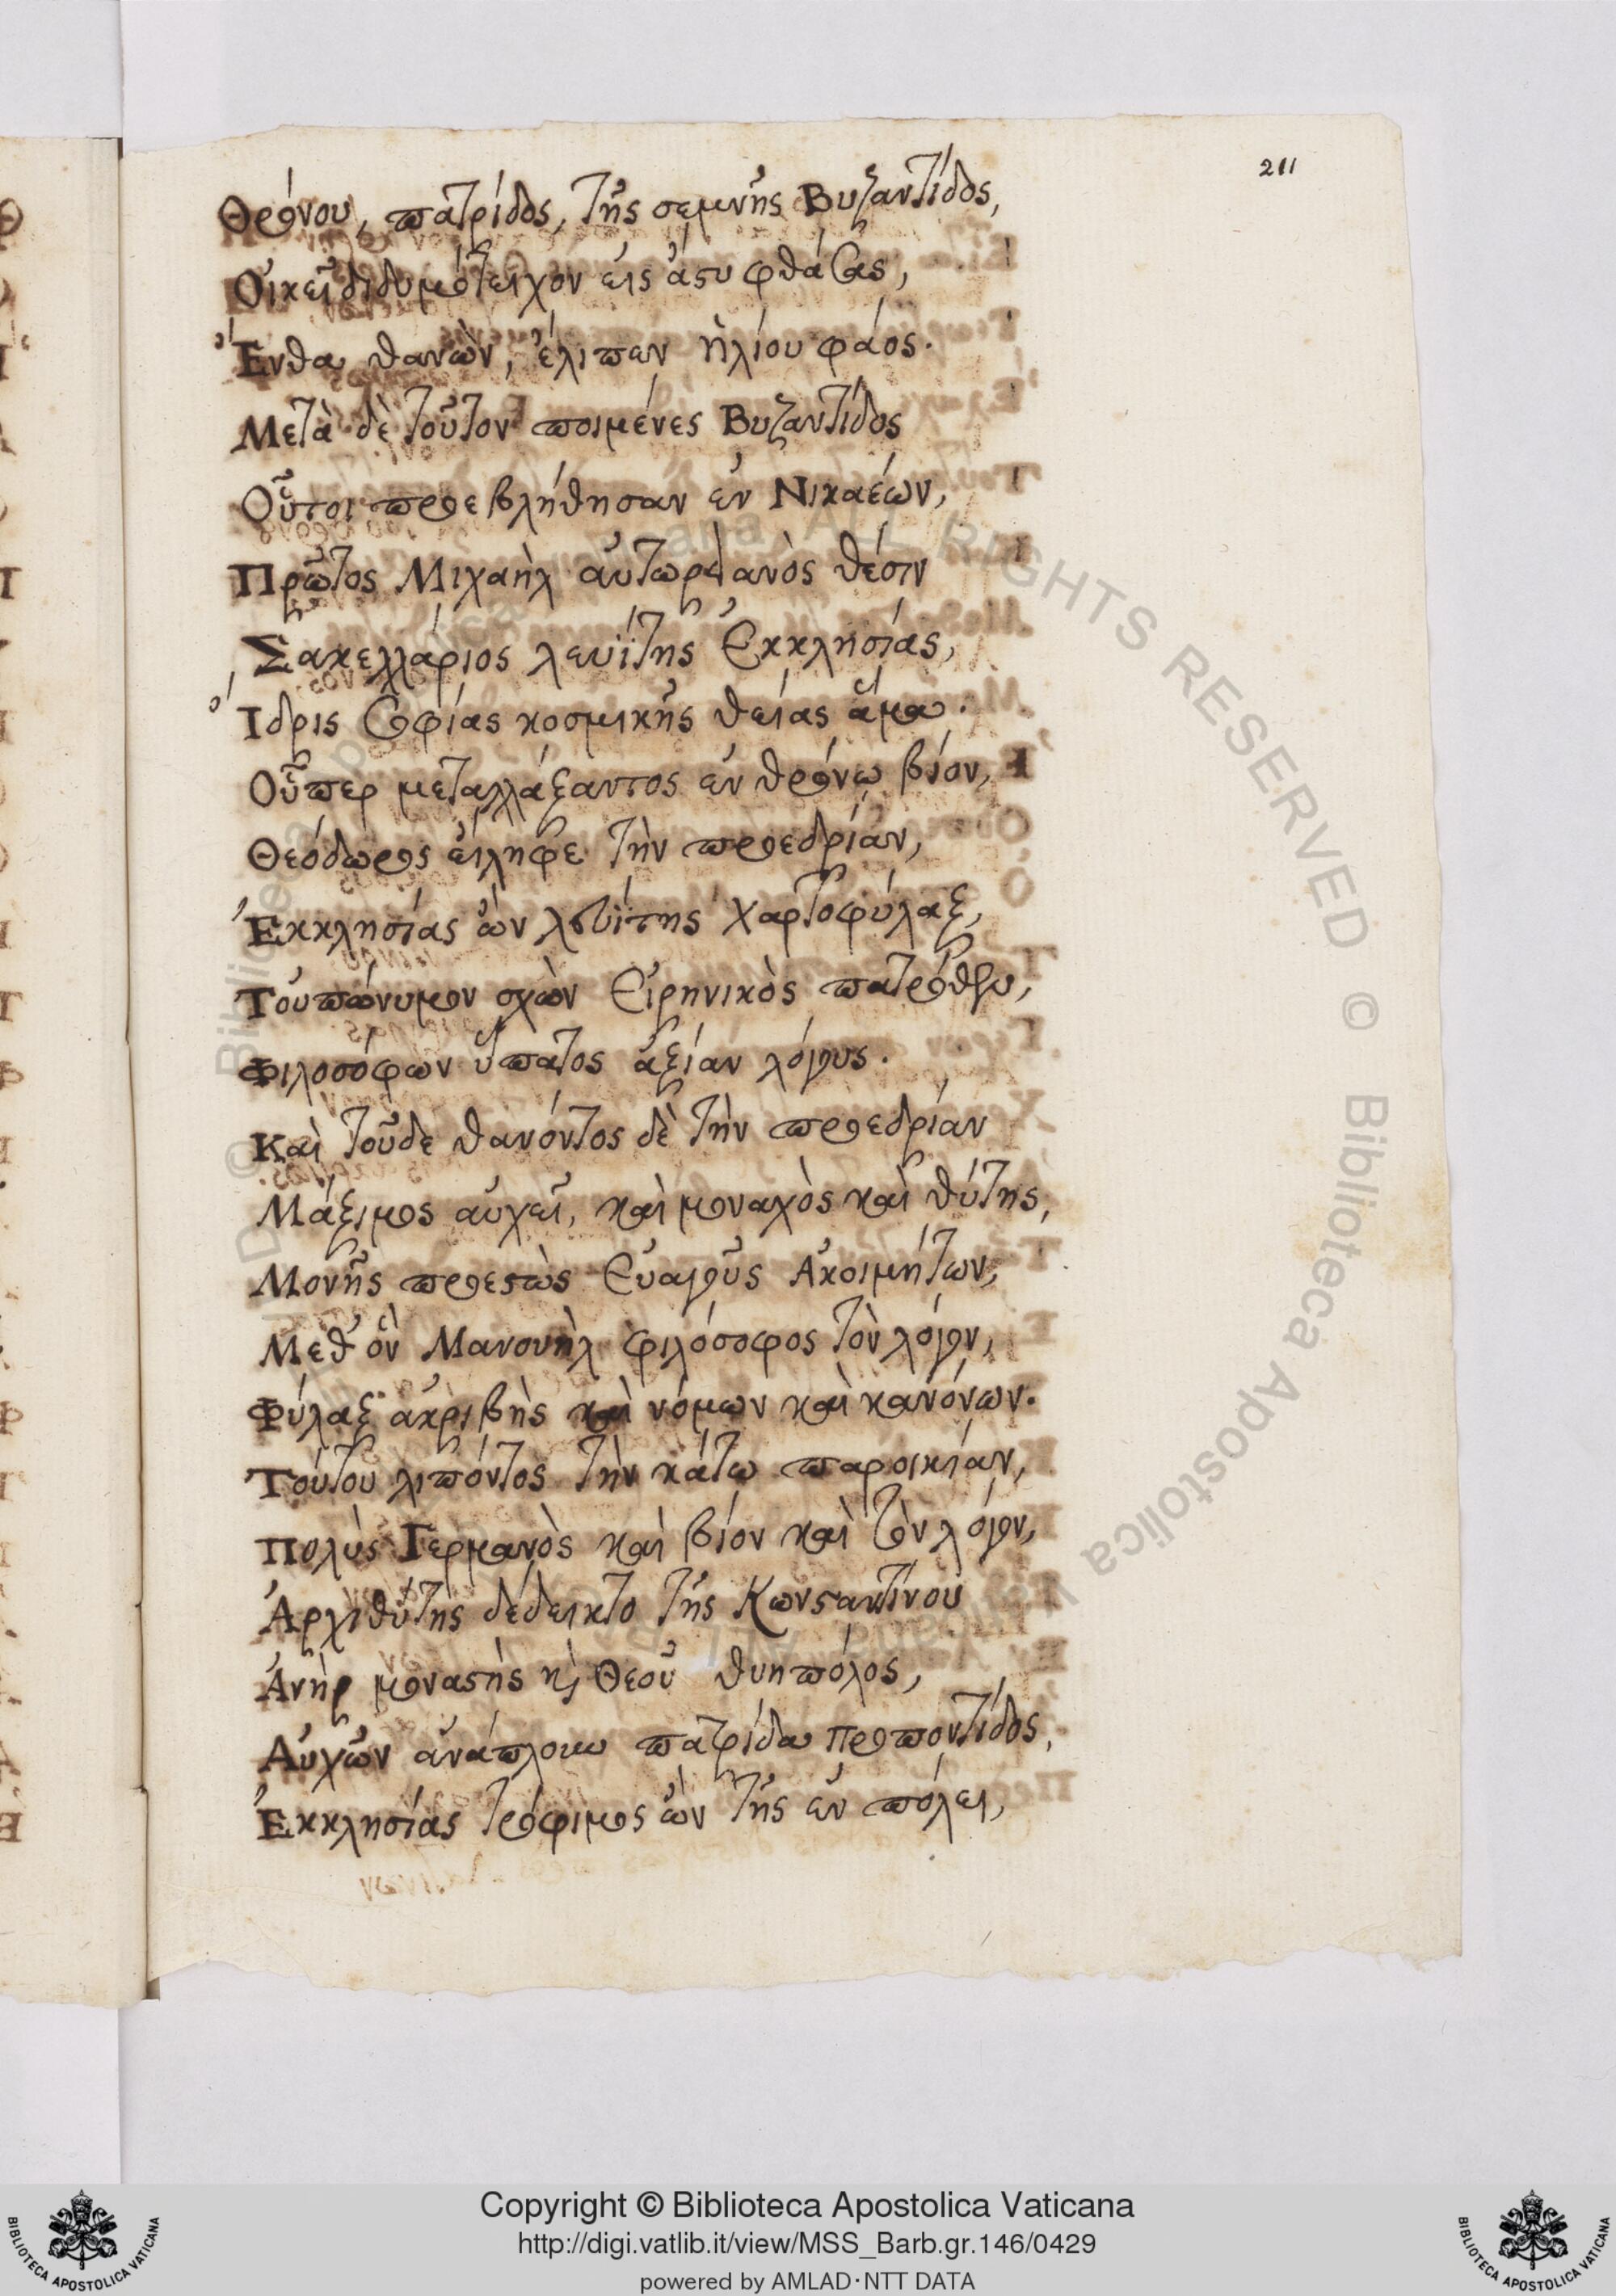 211
Θρόνου, πατρίδος, τῆς σεμνῆς Βυζαντίδος,
Οἰκεῖ διδυμότειχον εἰς ἄστυ φθάσας,
Ἔνθα θανὼν, ἔλιπεν ἡλίου φάος.
Μετὰ δὲ τοῦτον ποιμένες Βυζαντίδος
Οὗτοι προεβλήθησαν ἐν Νικαέων,
Πρῶτος Μιχαὴλ αὐτωρειανὸς θέσιν
Σακελλάριος λευΐτης Ἐκκλησίας,
Ἴδρις σοφίας κοσμικῆς θείας ἅμα.
Οὗπερ μεταλλάξαντος ἐν θρόνῳ βίον,
Θεόδωρος εἴληφε τὴν προεδρίαν,
Ἐκκλησίας ὢν λευΐτης χαρτοφύλαξ,
Τοὐπώνυμον σχὼν Εἰρηνικὸς πατρόθεν,
Φιλοσόφων ὕπατος ἀξίαν λόγους.
Καὶ τοῦδε θανόντος δὲ τὴν προεδρίαν
Μάξιμος αὐχεῖ, καὶ μοναχὸς καὶ θύτης,
Μονῆς προεστὼς Εὐαγοῦς Ἀκοιμήτων,
Μεθ' ὃν Μανουὴλ φιλόσοφος τὸν λόγον,
Φύλαξ ἀκριβὴς καὶ νόμων καὶ κανόνων.
Τούτου λιπόντος τὴν κάτω παροικίαν,
Πολὺς Γερμανὸς καὶ βίον καὶ τὸν λόγον,
Ἀρχιθύτης δέδεικτο τῆς Κωνσταντίνου
Ἀνὴρ μοναστὴς κὶ Θεοῦ θυηπόλος,
Αὐχῶν ἀνάπλουν πατρίδα Προποντίδος,
Ἐκκλησίας τρόφιμος ὢν τῆς ἐν πόλει,
Copyright © Biblioteca Apostolica Vaticana
http://digi.vatlib.it/view/MSS_Barb.gr.146/0429
powered by AMLAD·NTT DATA
BIBLIOTECA APOSTOLICA VATICANA
BIBLIOTECA APOSTOLICA VATICANA